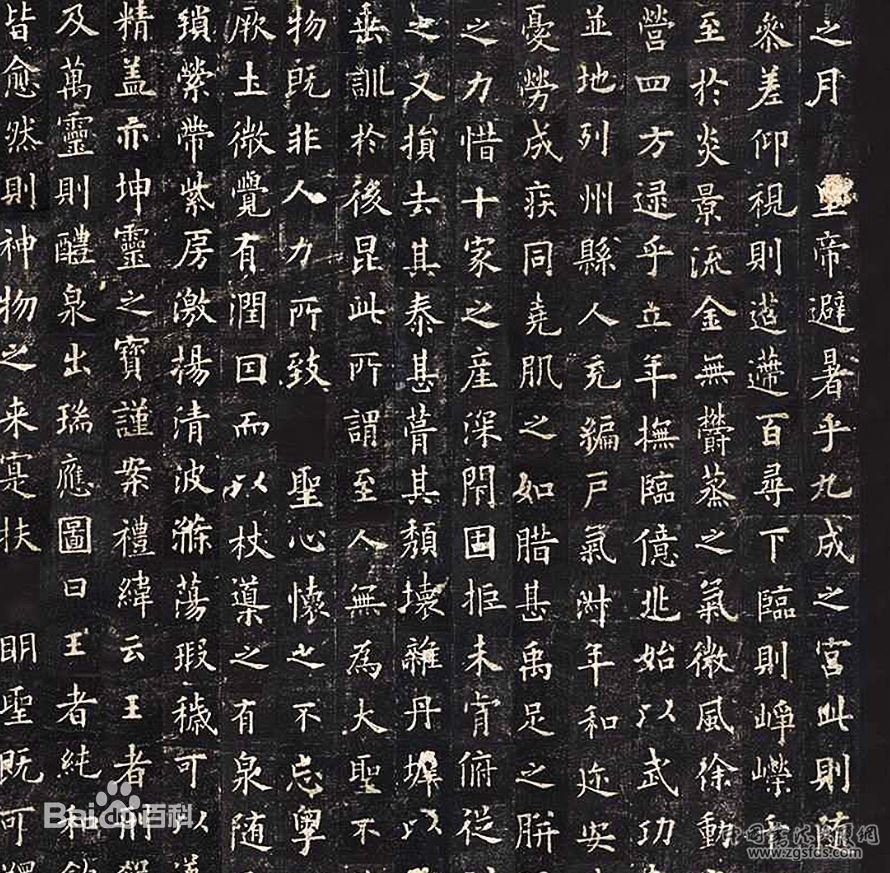 之月 皇帝避暑乎九成之宫此則随
叅差仰視則迢遰百尋下臨則崢嶸千
至於炎景流金無欝蒸之氣微風徐動
營四方逮乎立年撫臨億兆始以武功
並地列州縣人充編戶氣淑年和迩安
憂勞成疾同堯肌之如腊甚禹足之胼
之力惜十家之產深閇固拒未肯俯從
之又損去其泰甚葺其頹壞雜丹墀以
垂訓於後昆此所謂至人無為大聖不
物既非人力所致 聖心懷之不忘粤
厥土微覺有潤因而以杖導之有泉随
瑣縈帶紫房激揚清波滌蕩瑕穢可以
精盖亦坤靈之寶謹案禮緯云王者刑殺
及萬靈則醴泉出瑞應圖曰王者純和飲
皆愈然則神物之来寔扶 明聖既可蠲
Bai百科
www.zgsfds.com